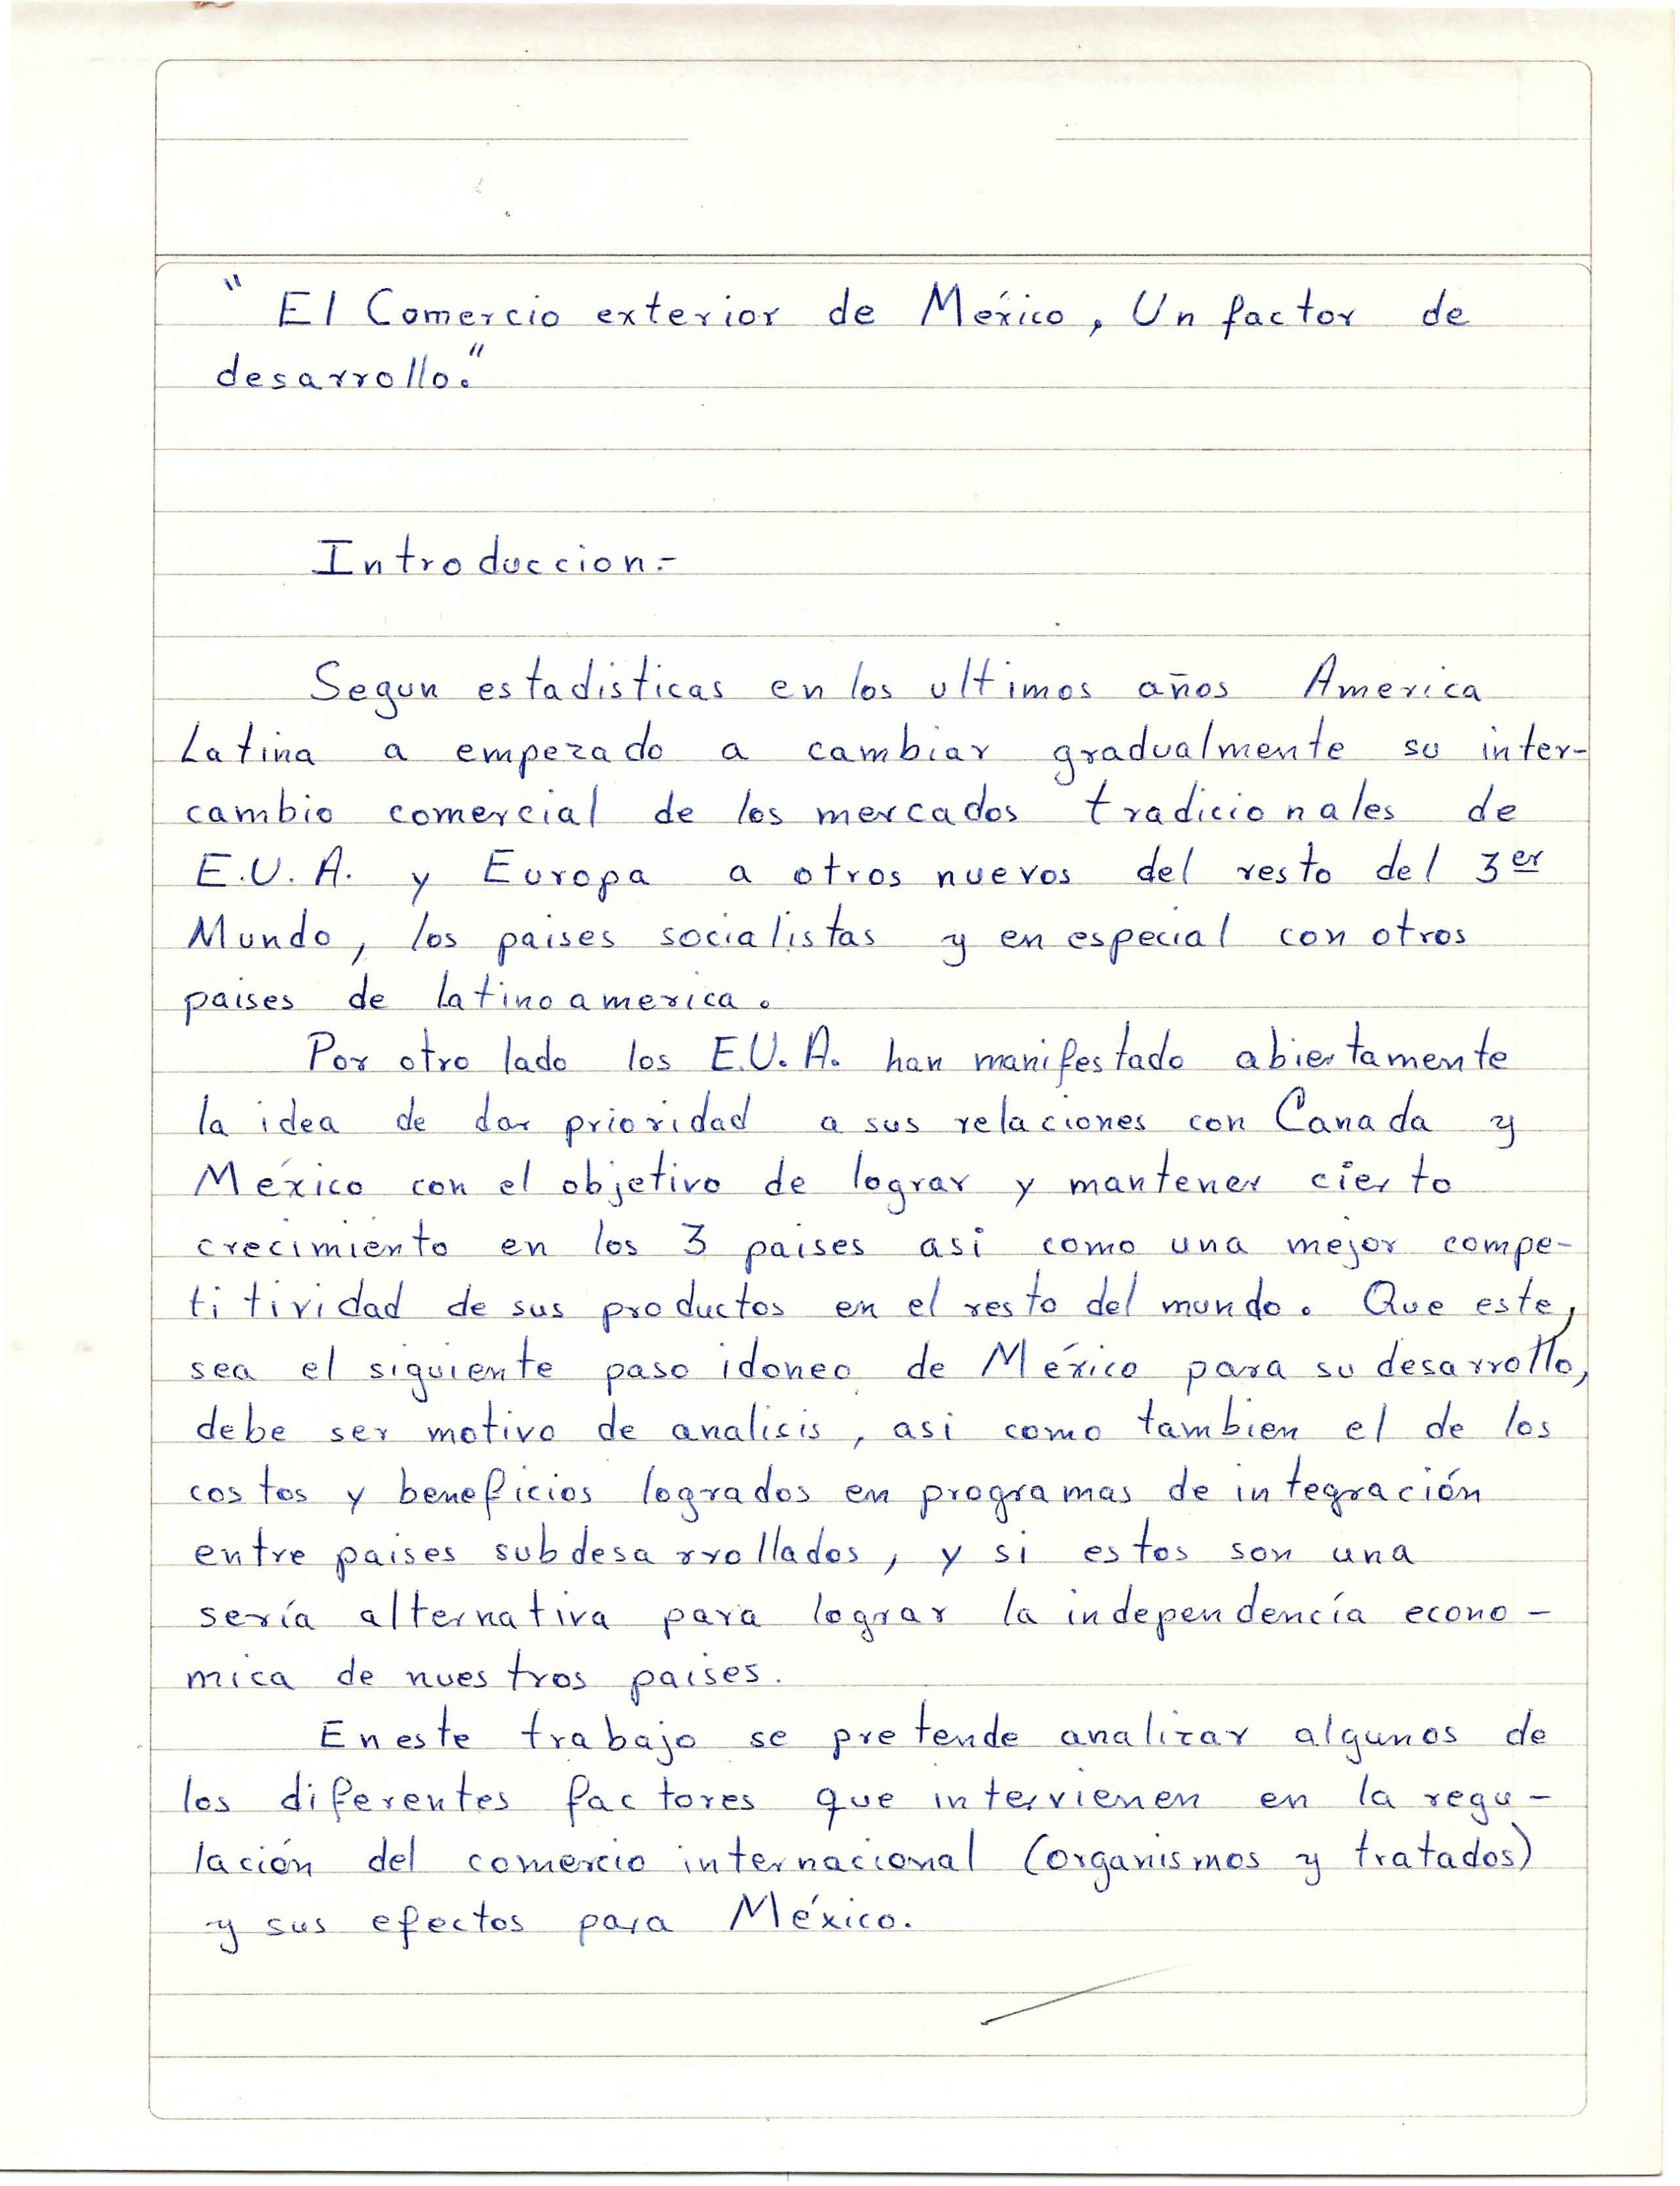 " El Comercio exterior de México, Un factor de
desarrollo."
Introduccion.-
Segun estadisticas en los ultimos años America
Latina a empezado a cambiar gradualmente su inter-
cambio comercial de los mercados tradicionales de
E.U.A. y Europa a otros nuevos del resto del 3er
Mundo, los paises socialistas y en especial con otros
paises de latinoamerica.
Por otro lado los E.U.A. han manifestado abiertamente
la idea de dar prioridad a sus relaciones con Canada y
México con el objetivo de lograr y mantener cierto
crecimiento en los 3 paises asi como una mejor compe-
titividad de sus productos en el resto del mundo. Que este,
sea el siguiente paso idoneo de México para su desarrollo,
debe ser motivo de analisis, asi como tambien el de los
costos y beneficios logrados en programas de integración
entre paises subdesarrollados, y si estos son una
sería alternativa para lograr la independencía econo-
mica de nuestros paises.
En este trabajo se pretende analizar algunos de
los diferentes factores que intervienen en la regu-
lación del comercio internacional (organismos y tratados)
y sus efectos para México.